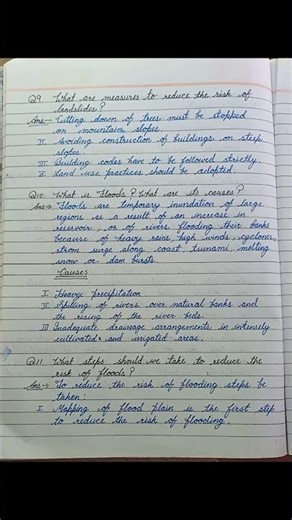 Q9. What are measures to reduce the risk of
landslides?
Ans:- Cutting down of trees must be stopped
on mountain slopes.
II Avoiding construction of buildings on steep
slopes.
III Building codes have to be followed strictly.
IV Land use practices should be adopted.
Q10. What is Floods? What are its causes?
Ans:- Floods are temporary inundation of large
regions as a result of an increase in
reservoir, or of rivers flooding their banks
because of heavy rains, high winds, cyclones,
strom surge along coast, tsunami, melting
snow or dam bursts.
Causes
I Heavy precipitation
II Spilling of rivers over natural banks and
the rising of the river beds.
III Inadequate drainage arrangements in intensely
cultivated and irrigated areas.
Q11. What steps should we take to reduce the
risk of floods?
Ans:- To reduce the risk of flooding steps be
taken:
I Mapping of flood plain is the first step
to reduce the risk of flooding.